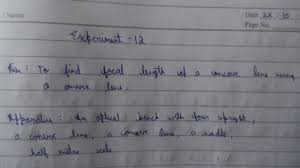 Name
Date 22 10
Page No.
Experiment - 12
Aim : To find focal length of a concave lens using
a convex lens.
Apparatus : An optical bench with four upright,
a convex lens, a concave lens, a needle,
half metre scale